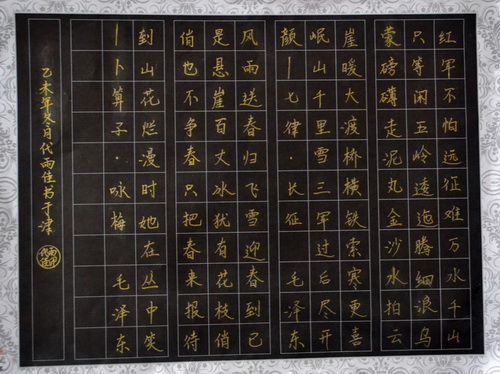 红军不怕远征难万水千山
只等闲五岭逶迤腾细浪乌
蒙磅礴走泥丸金沙水拍云
崖暖大渡桥横铁索寒更喜
岷山千里雪三军过后尽开
颜—七律·长征 毛泽东
风雨送春归飞雪迎春到已
是悬崖百丈冰犹有花枝俏
俏也不争春只把春来报待
到山花烂漫时她在丛中笑
—卜算子·咏梅 毛泽东
乙未年冬月代雨佳书于津